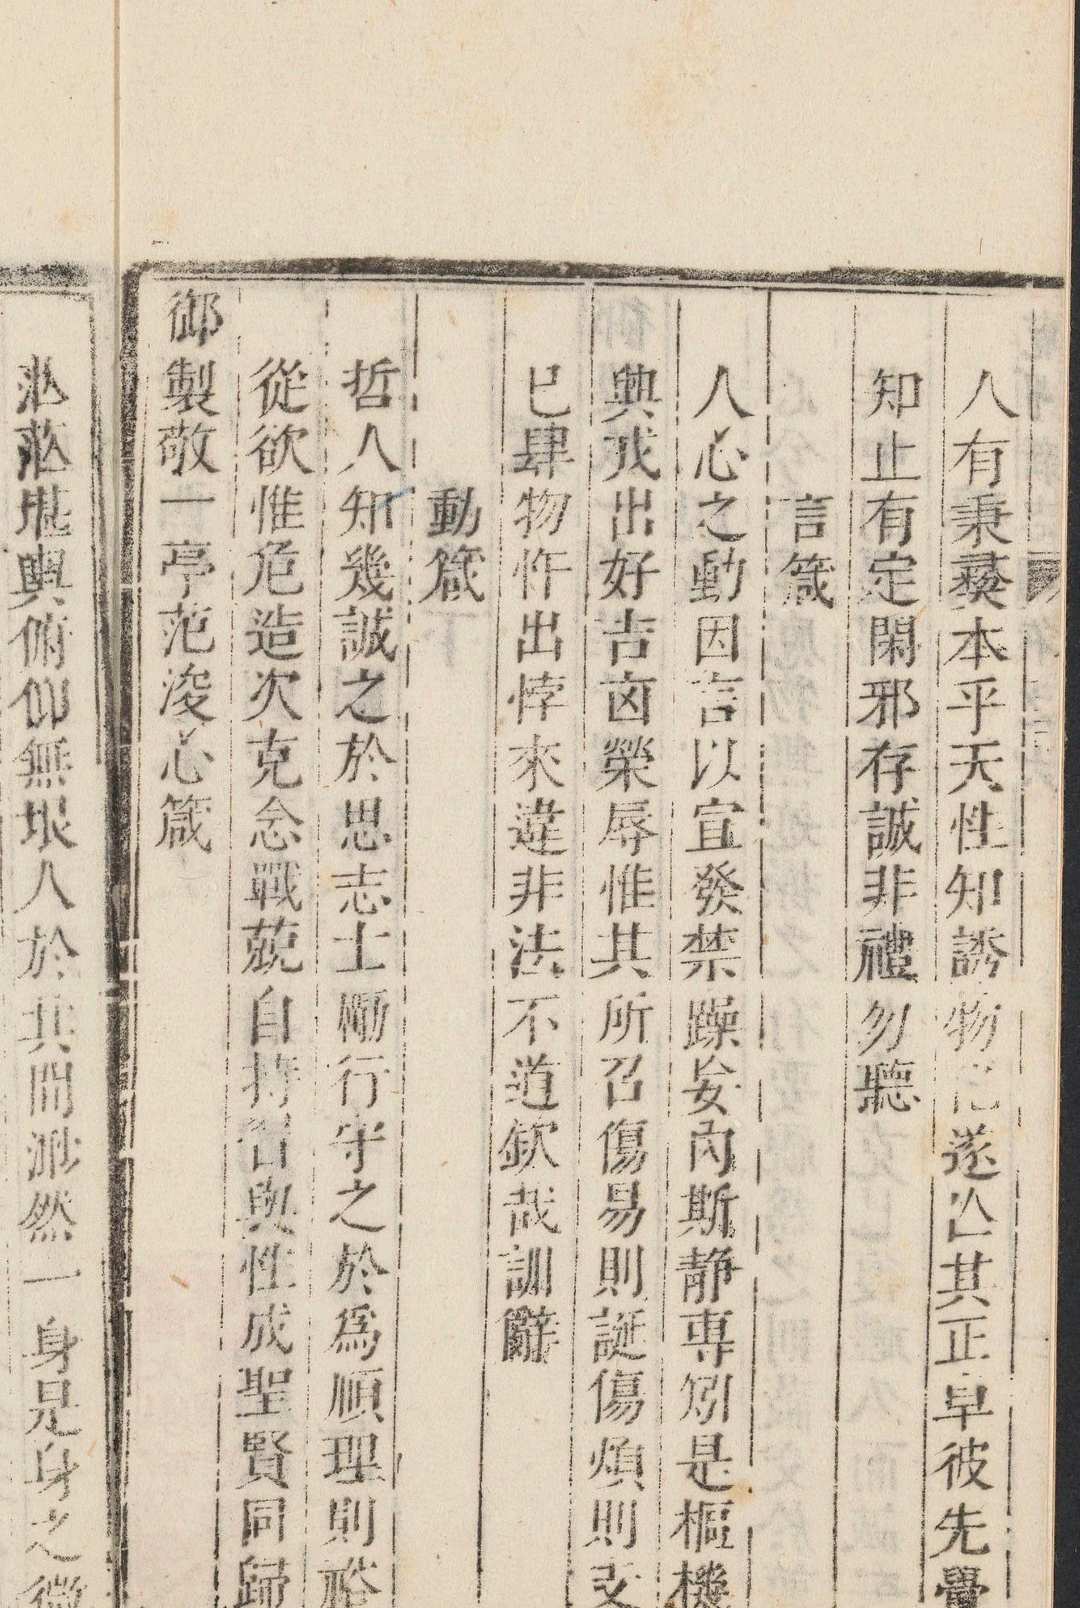 人有秉彝本乎天性知誘物化遂亡其正卓彼先覺
知止有定閑邪存誠非禮勿聽
言箴
人心之動因言以宣發禁躁妄內斯靜専矧是樞機
興戎出好吉凶榮辱惟其所召傷易則誕傷煩則支
已肆物忤出悖來違非法不道欽哉訓辭
動箴
哲人知幾誠之於思志士勵行守之於爲順理則裕
從欲惟危造次克念戰兢自持習與性成聖賢同歸
御製敬一亭范浚心箴
茫茫堪輿俯仰無垠人於其間渺然一身是身之微